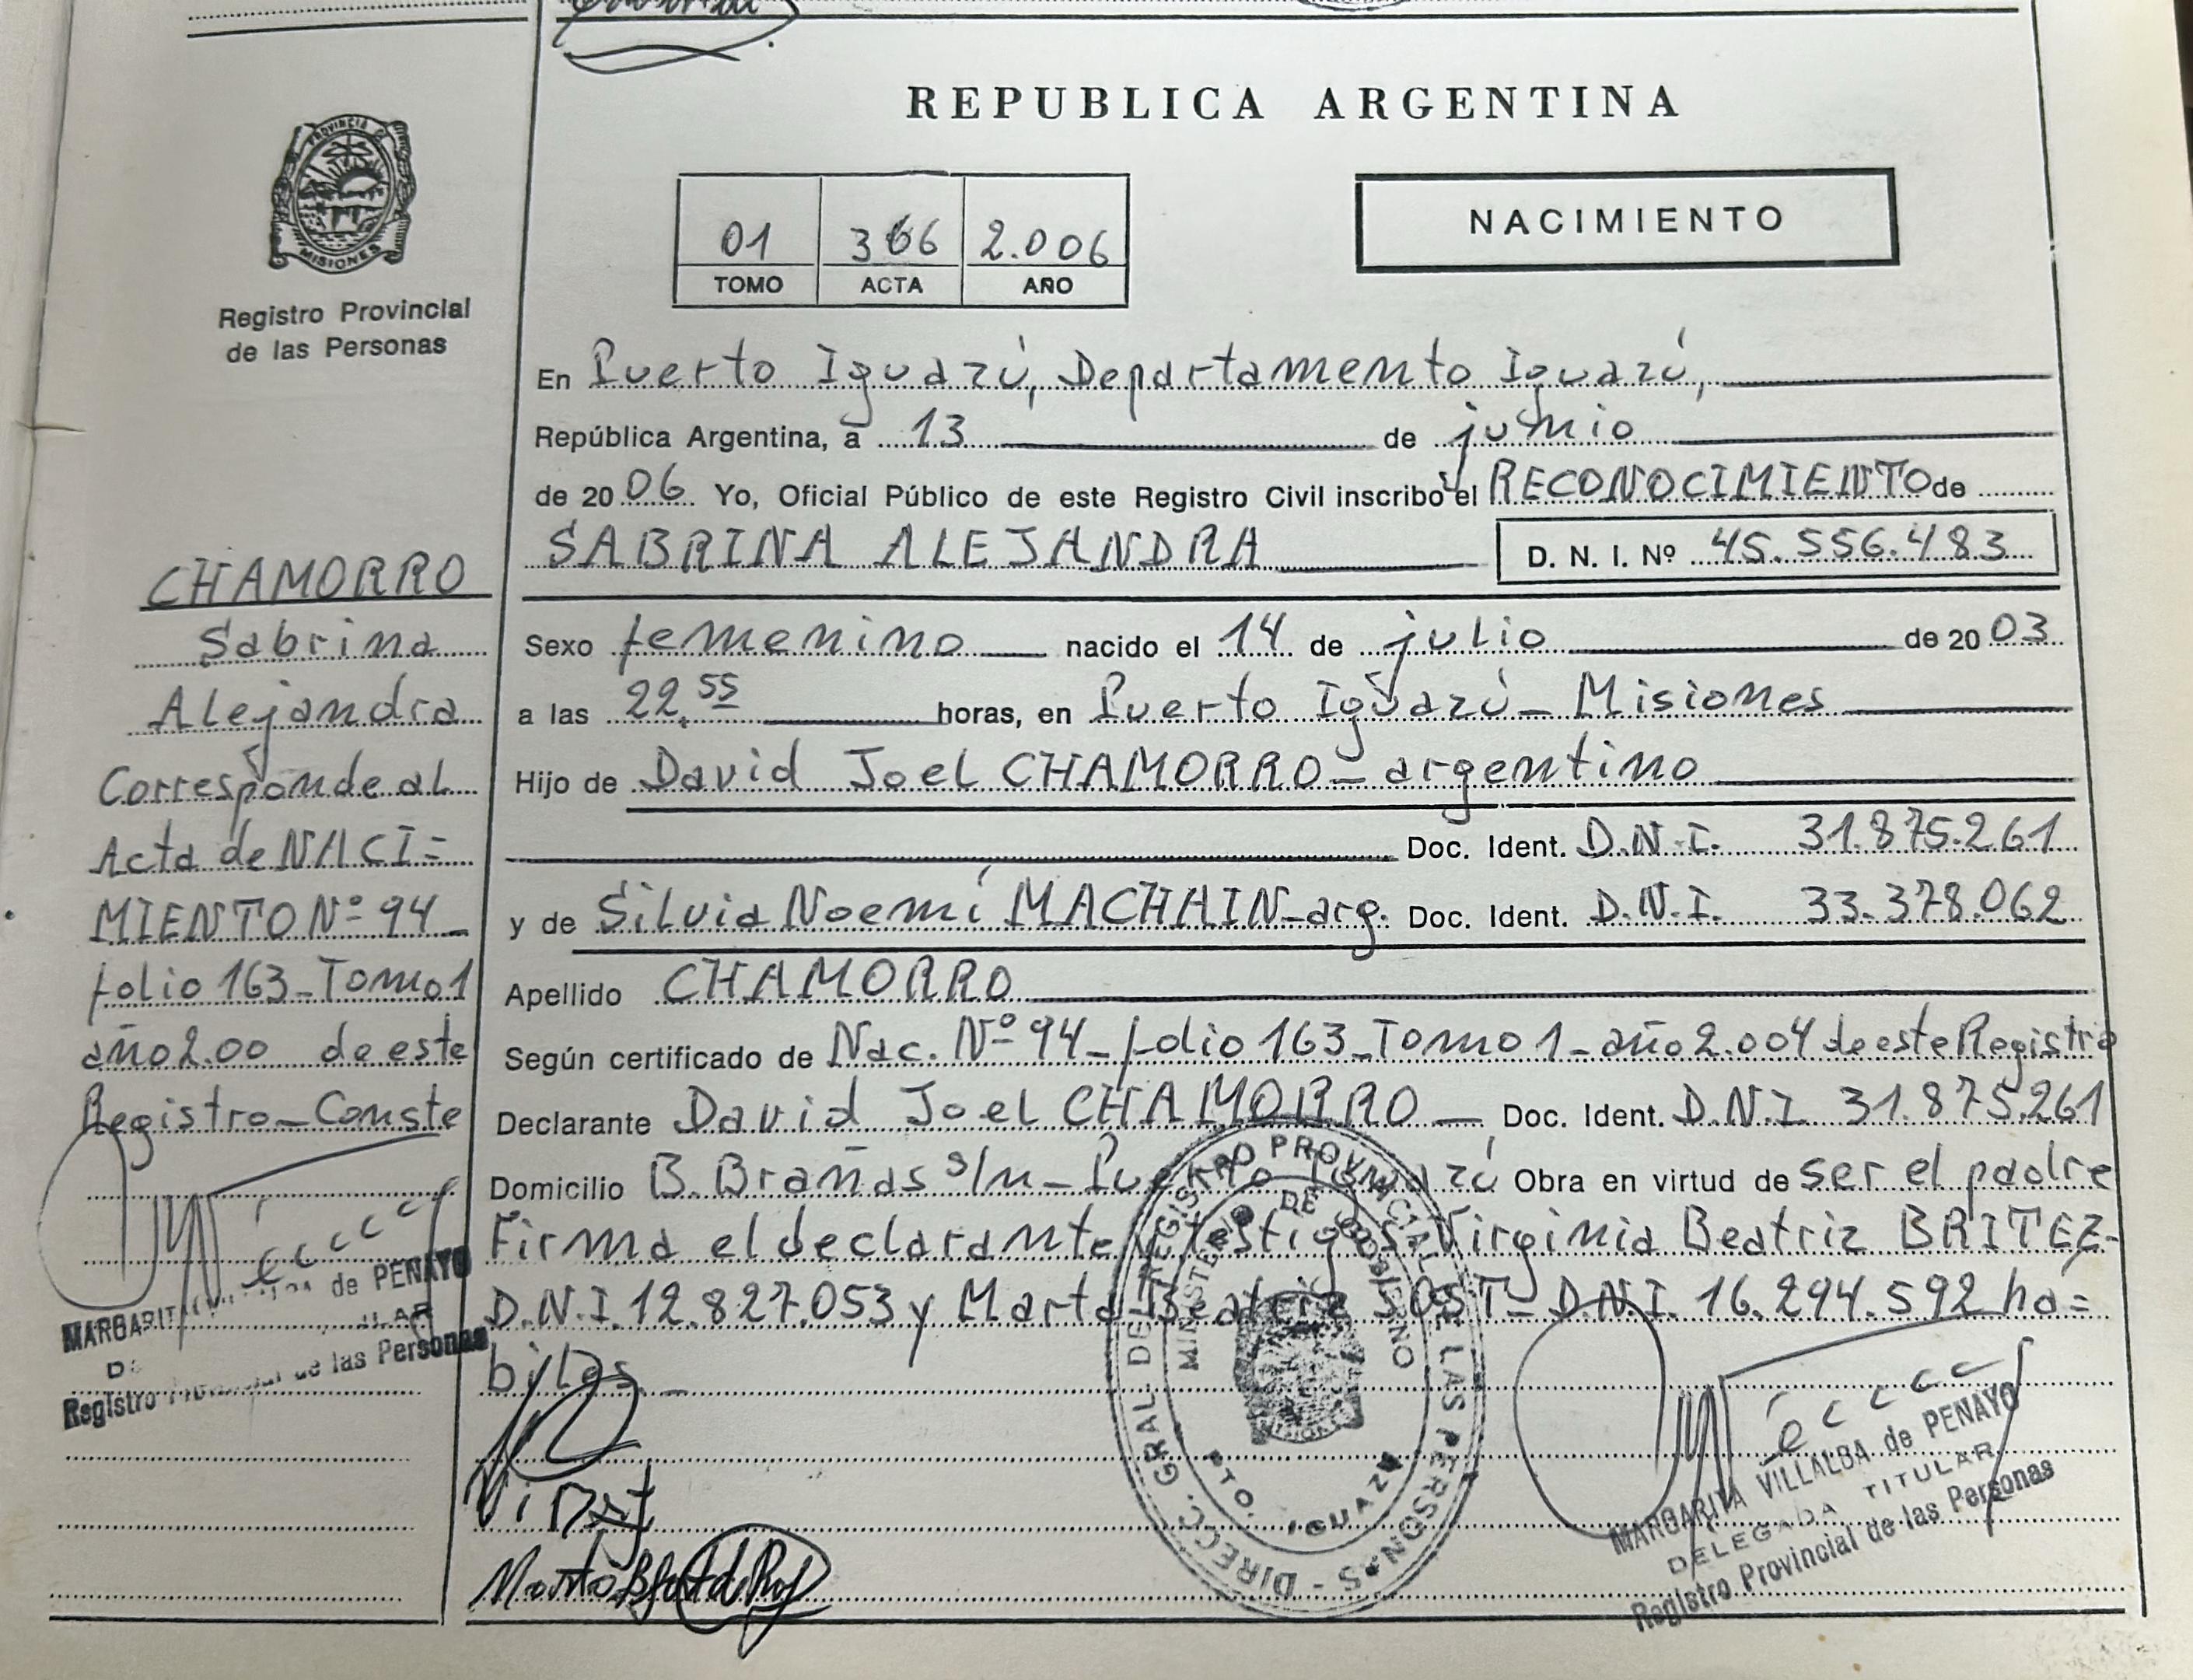 REPUBLICA ARGENTINA
PROVINCIA D
MISIONES
Registro Provincial
de las Personas
01 366 2.006
TOMO ACTA AÑO
NACIMIENTO
CHAMORRO
Sabrina
Alejandra
Corresponde al
Acta de NACI=
MIENTO Nº 94_
folio 163_Tomo 1
año 2.00 de este
Registro_Conste
MARGARIT de PENAYO
Registro de las Personas
En Puerto Iguazú, Departamento Iguazú,
República Argentina, a 13 de junio
de 2006 Yo, Oficial Público de este Registro Civil inscribo el RECONOCIMIENTO de
SABRINA ALEJANDRA D. N. I. Nº 45.556.483
Sexo femenino nacido el 14 de julio de 2003
a las 22.55 horas, en Puerto Iguazú_ Misiones
Hijo de David Joel CHAMORRO_ argentino
Doc. Ident. D.N.I. 31.875.261
y de Silvia Noemí MACHAIN_arg. Doc. Ident. D.N.I. 33.378.062
Apellido CHAMORRO
Según certificado de Nac. Nº 94_folio 163_Tomo 1_año 2.004 de este Registro
Declarante David Joel CHAMORRO_ Doc. Ident. D.N.I 31.875.261
Domicilio B. Brañas s/n_Puerto Iguazú Obra en virtud de ser el padre
Firma el declarante y testigos Virginia Beatriz BRITEZ-
D.N.I. 12.827.053 y Marta Beatriz SOST_ D.N.I. 16.294.592 ha=
biles_
DIRECC. GRAL DEL REGISTRO PROVINCIAL DE LAS PERSONAS -
MINISTERIO DE GOBIERNO
PTO. IGUAZU
MARGARITA VILLALBA de PENAYO
DELEGADA TITULAR
Registro Provincial de las Personas